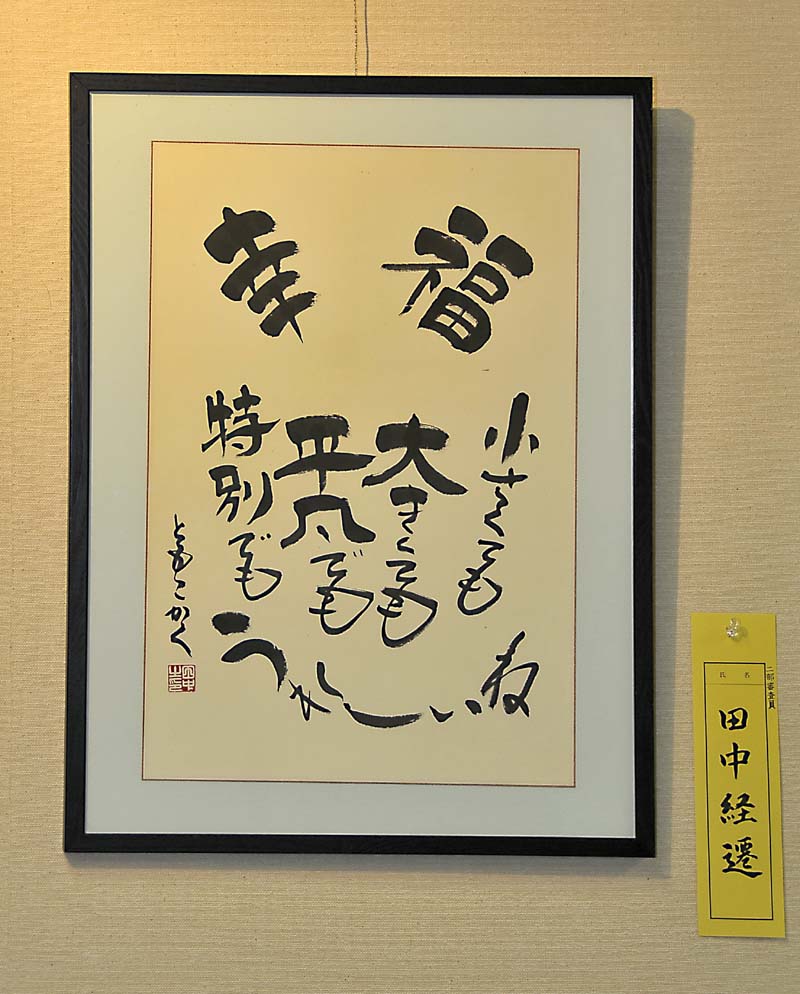 幸福
小さくても
大きくても
平凡でも
特別でも
うれしいね
ともこかく
二部審査員
氏名
田中経遷